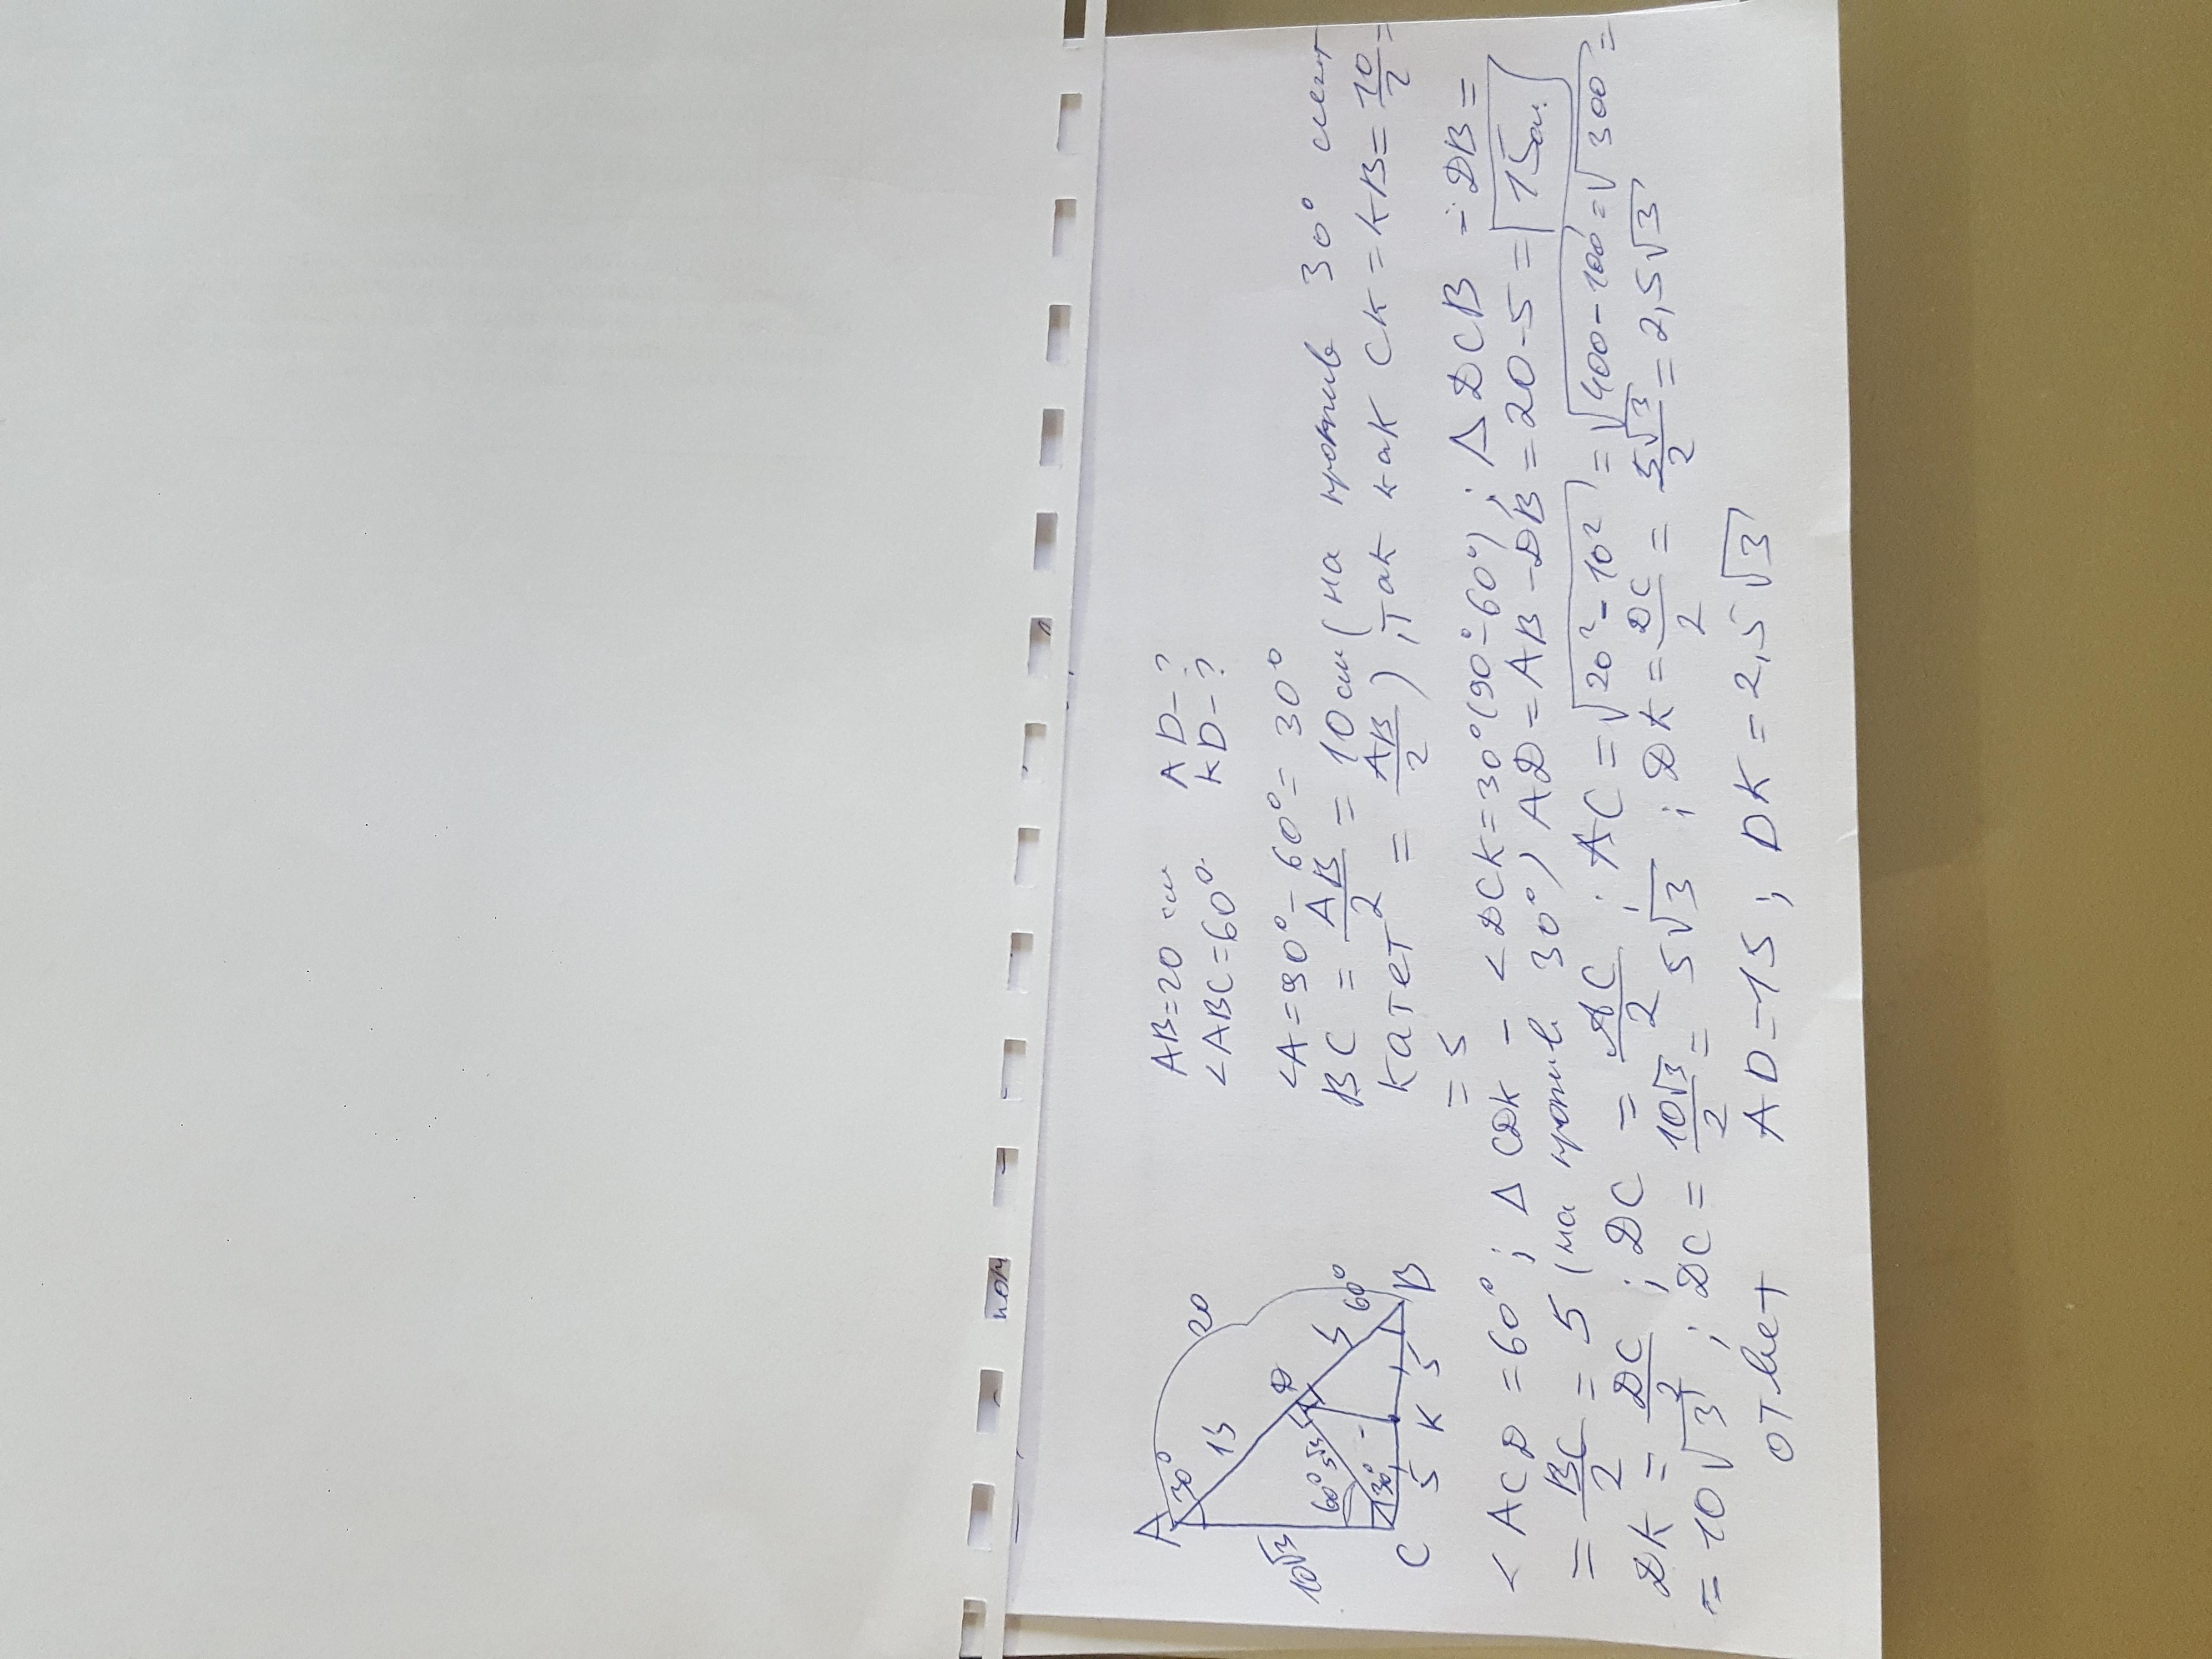 AB=20 см AD-?
<ABC=60° KD-?
<A=90°-60°=30°
BC = AB/2 = 10 см (на против 30° лежит
катет = AB/2), так как CK = KB = 10/2 =
= 5
<ACD = 60°; Δ CDK - <DCK=30°(90°-60°); Δ DCB - DB=
= BC/2 = 5 (на против 30°) AD=AB-DB=20-5= 15см.
DK = DC/2; DC = AC/2; AC = √20²-10² = √400-100 = √300 =
= 10√3; DC = 10√3/2 = 5√3; DK = DC/2 = 5√3/2 = 2,5√3
ответ AD-15; DK = 2,5√3
A
30°
20
15
D
10√3
60°
5√3
5
60°
30°
C
5
K
5
B